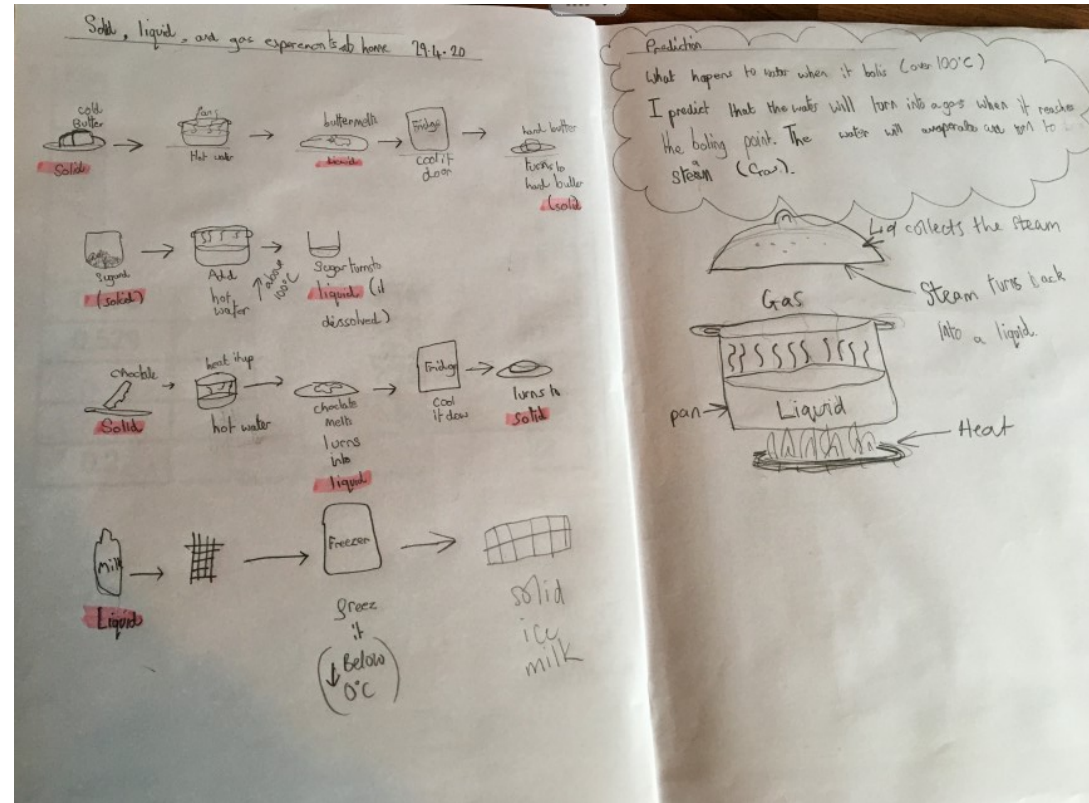 Solid, liquid, and gas experements at home 29.4.20
cold
Butter
Solid
Pan
Hot water
butter melts
liquid
Fridge
cool it
down
hard butter
turns to
hard butter
(solid
Sugard
(solid)
Add
hot
water
↑ above
100°C
Sugar turns to
liquid (it
dissolved)
choclate
Solid
heat it up
hot water
choclate
melts
turns
into
liquid
Fridge
Cool
it dow
turns to
solid
Milk
Liquid
Freezer
freez
it
(↓ Below
0°C)
solid
ice
milk
Prediction
What happens to water when it bolis (over 100°C)
I predict that the water will turn into a gas when it reaches
the boling point. The water will evaporate turn to
a
steam (Gas).
Lid collects the steam
Steam turns back
into a liquid.
Gas
Liquid
pan
Heat